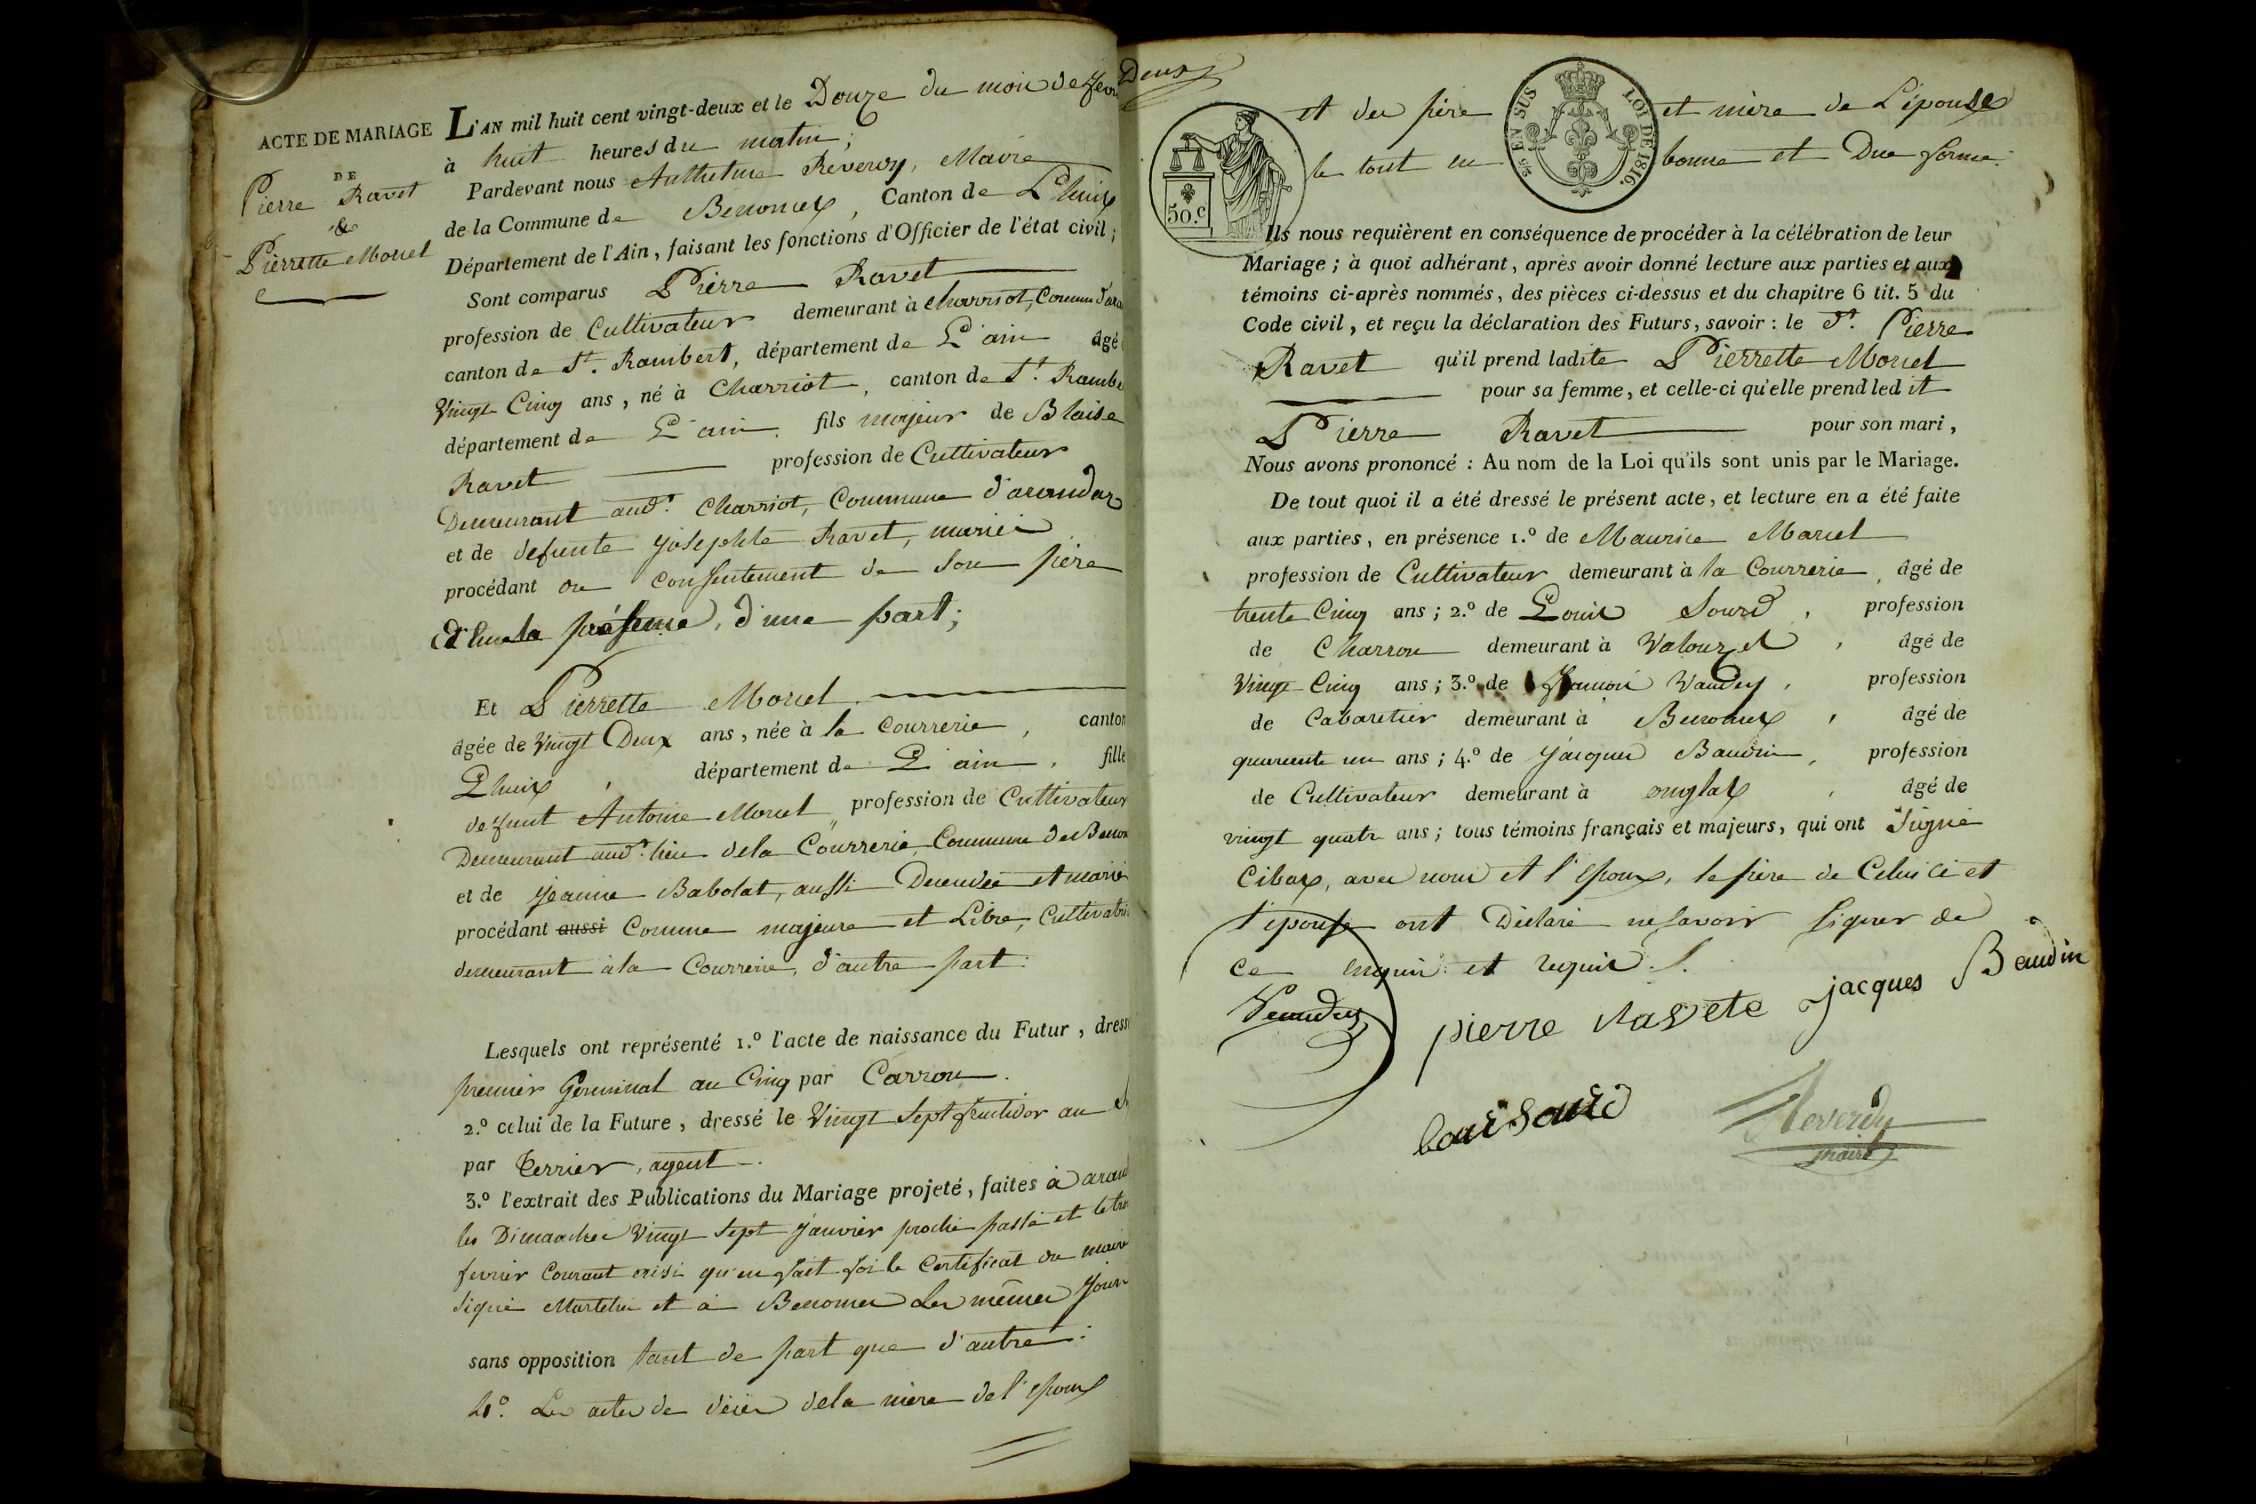 ACTE DE MARIAGE
DE
Pierre Ravet
&
Pierrette Morel
L'AN mil huit cent vingt-deux et le Douze du mois de fevr
à huit heures du matin;
Pardevant nous Anthelme Reverdy, Maire
de la Commune de Benonces, Canton de L'huis
Département de l'Ain, faisant les fonctions d'Officier de l'état civil;
Sont comparus Pierre Ravet
profession de Cultivateur demeurant à charriot, Commune d'aran
canton de St. Rambert, département de L'ain âgé
Vingt Cinq ans, né à Charriot, canton de St. Rambe
département de L'ain. fils majeur de Blaise
Ravet profession de Cultivateur
Demeurant aud.t Charriot, Commune d'arandas
et de defunte josephte Ravet, mariés
procédant du consentement de son père
Et en sa présence, d'une part;
Et Pierrette Morel
âgée de Vingt Deux ans, née à la Courrerie, canton
L'huis, département de L'ain, fille
defunt Antoine Morel, profession de Cultivateur
Demeurant aud.t lieu dela Courrerie Commune de Benon
et de jeanne Babolat, aussi Decedée et mariés
procédant aussi Comme majeure et Libre, Cultivatri
demeurant à la Courrerie, d'autre part:
Lesquels ont représenté 1.º l'acte de naissance du Futur, dress
premier Germinal an Cinq par Carron.
2.º celui de la Future, dressé le Vingt Sept fructidor an
par Terrier, agent.
3.º l'extrait des Publications du Mariage projeté, faites à arand
les Dimanches Vingt Sept janvier proche passé et le tro
fevrier Courant ainsi qu'en fait foi le Certificat du maire
Signé Martelin et à Benonces Les mêmes jours
sans opposition tant de part que d'autre:
4º. Les actes de décès dela mère de l'Epoux
Deux
et des père et mère de L'épouse
le tout en bonne et Due forme.
50.c
2/5 EN SUS LOI DE 1816.
Ils nous requièrent en conséquence de procéder à la célébration de leur
Mariage; à quoi adhérant, après avoir donné lecture aux parties et aux
témoins ci-après nommés, des pièces ci-dessus et du chapitre 6 tit. 5 du
Code civil, et reçu la déclaration des Futurs, savoir: le St. Pierre
Ravet qu'il prend ladite Pierrette Morel
pour sa femme, et celle-ci qu'elle prend led it
Pierre Ravet pour son mari,
Nous avons prononcé: Au nom de la Loi qu'ils sont unis par le Mariage.
De tout quoi il a été dressé le présent acte, et lecture en a été faite
aux parties, en présence 1.º de Maurice Marcel
profession de Cultivateur demeurant à la Courrerie, âgé de
trente Cinq ans; 2.º de Louis Sourd, profession
de Charron demeurant à Valouzet, âgé de
Vingt Cinq ans; 3.º de françois Vaudey, profession
de Cabaretier demeurant à Benonces, âgé de
quarente un ans; 4.º de jacques Baudin, profession
de Cultivateur demeurant à onglas, âgé de
vingt quatre ans; tous témoins français et majeurs, qui ont Signé
Cibas, avec nous et l'Epoux, le père de Celui ci et
l'épouse ont Déclaré ne savoir signer de
ce enquis et requis.
Vaudey pierre ravete jacques Baudin
Reverdy
maire